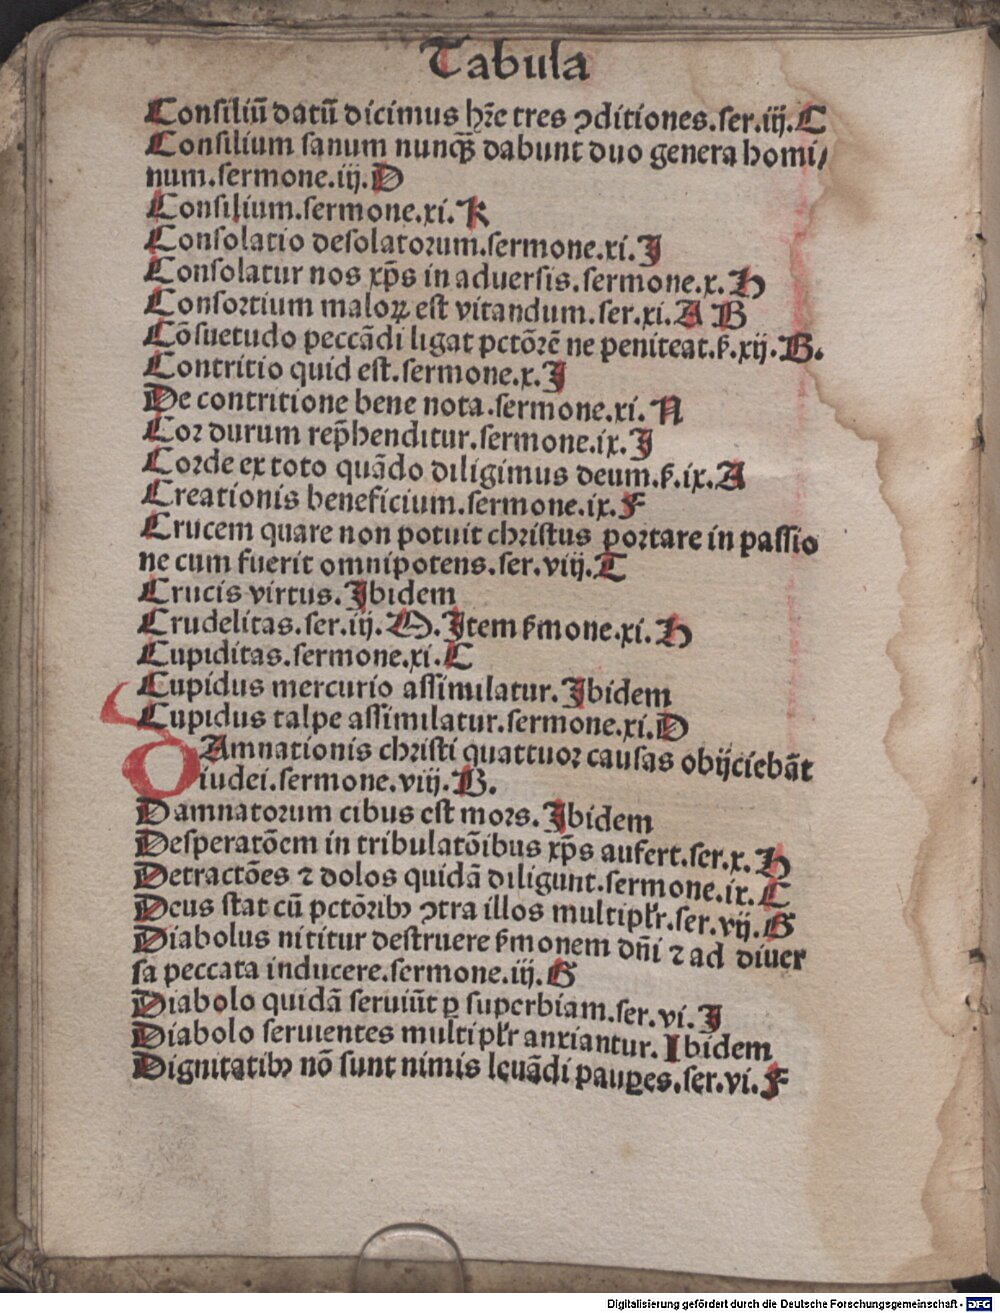 Tabula
Consiliū datū dicimus hr̄e tres ꝯditiones.ser.iij.C
Consilium sanum nunqꝫ̄ dabunt duo genera homi/
num.sermone.iij.D
Consilium.sermone.xi.K
Consolatio desolatorum.sermone.xi.J
Consolatur nos xp̄s in aduersis.sermone.x.H
Consortium maloꝝ est vitandum.ser.xi.A B
Cōsuetudo peccādi ligat pctōrē ne peniteat.ẜ.xij.B.
Contritio quid est.sermone.x.J
De contritione bene nota.sermone.xi.N
Cor durum rep̄henditur.sermone.ix.J
Corde ex toto quādo diligimus deum.ẜ.ix.A
Creationis beneficium.sermone.ix.F
Crucem quare non potuit christus portare in passio
ne cum fuerit omnipotens.ser.viij.T
Crucis virtus.Jbidem
Crudelitas.ser.iij.O.Jtem ẜmone.xi.H
Cupiditas.sermone.xi.C
Cupidus mercurio assimilatur.Jbidem
Cupidus talpe assimilatur.sermone.xi.D
DAmnationis christi quattuor causas obijciebāt
iudei.sermone.viij.B.
Damnatorum cibus est mors.Jbidem
Desperatōem in tribulatōibus xp̄s aufert.ser.x.H
Detractōes ⁊ dolos quidā diligunt.sermone.ix.C
Deus stat cū pctōribꝫ ꝯtra illos multipl̓r.ser.vij.G
Diabolus nititur destruere ẜmonem dn̄i ⁊ ad diuer
sa peccata inducere.sermone.iij.G
Diabolo quidā seruiūt ꝑ superbiam.ser.vi.J
Diabolo seruientes multipl̓r anxiantur.Ibidem
Dignitatibꝫ nō sunt nimis leuādi pauꝑes.ser.vi.F
Digitalisierung gefördert durch die Deutsche Forschungsgemeinschaft - DFG